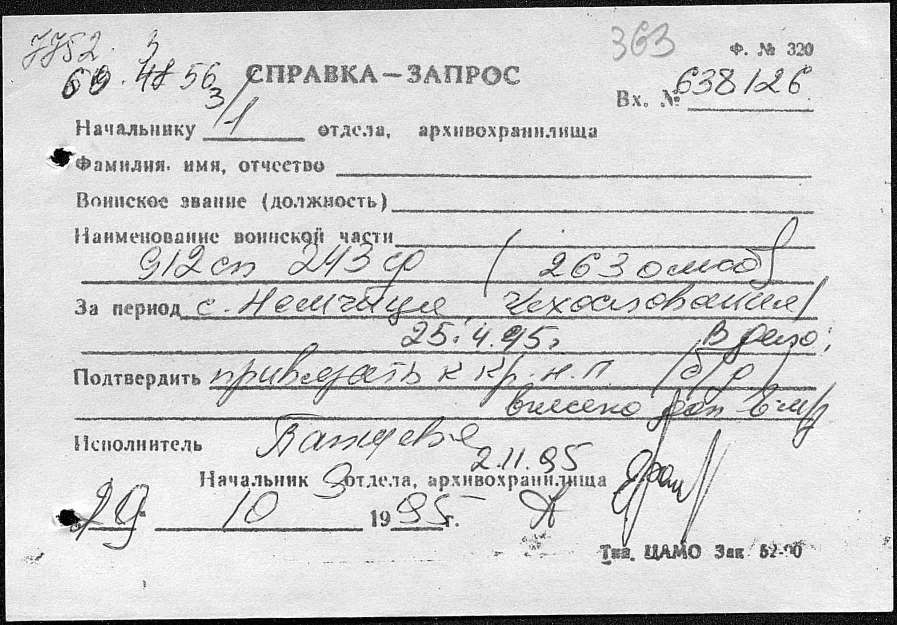 363
Ф. № 320
СПРАВКА—ЗАПРОС
60. 48 56
Вх. № 638126
Начальнику 1 отдела, архивохранилища
Фамилия. имя, отчество
Воинское звание (должность)
Наименование воинской части
912 сп 243 сд (263 омсб)
За период с. Немчице Чехословакия
25.4.95г В дело:
Подтвердить привязать к кр. н. п.
внесено
Исполнитель
2.11.95
Начальник 3 отдела, архивохранилища
29 10 1995 г.
Тип. ЦАМО Зак 52-90